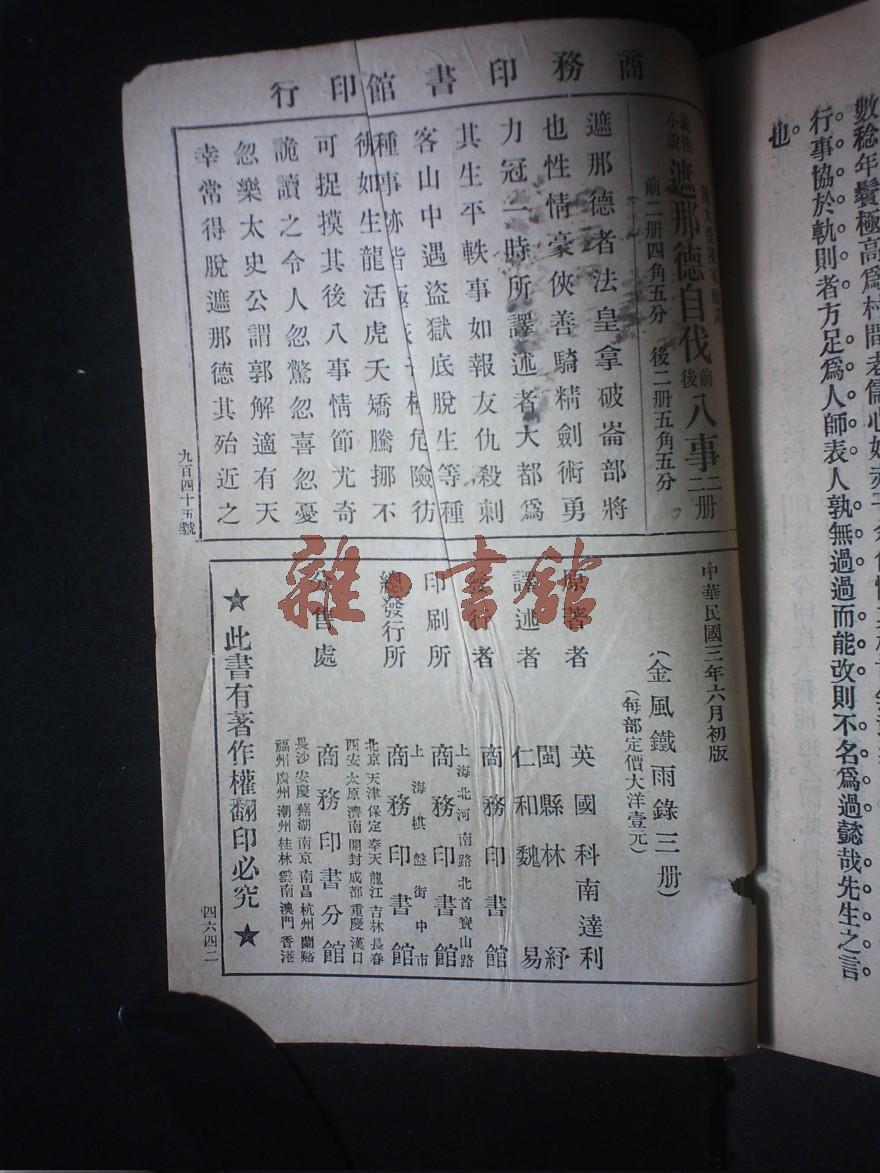 數稔年鬢極高爲村間老儒心如赤子
行事協於軌則者方足爲人師表人孰無過過而能改則不名爲過懿哉先生之言
也。
商務印書館印行
義俠小說 遮那德自伐 前後 八事 二二册
前二册四角五分 後二册五角五分
遮那德者法皇拿破崙部將
也性情豪俠善騎精劍術勇
力冠一時所譯述者大都爲
其生平軼事如報友仇殺刺
客山中遇盜獄底脫生等種
種事跡皆極
危險彷
彿如生龍活虎夭矯騰挪不
可捉摸其後八事情節尤奇
詭讀之令人忽驚忽喜忽憂
忽樂太史公謂郭解適有天
幸常得脫遮那德其殆近之
九百四十五號
中華民國三年六月初版
(金風鐵雨錄三册)
(每部定價大洋壹元)
原著者 英國科南達利
譯述者 閩縣林紓 仁和魏易
發行者 商務印書館
印刷所 上海北河南路北首寶山路 商務印書館
總發行所 上海棋盤街中市 商務印書館
分售處 北京 天津 保定 奉天 龍江 吉林 長春
西安 太原 濟南 開封 成都 重慶 漢口
商務印書分館
長沙 安慶 蕪湖 南京 南昌 杭州 蘭谿
福州 廣州 潮州 桂林 雲南 澳門 香港
★此書有著作權翻印必究★
四六四二
雜·書館